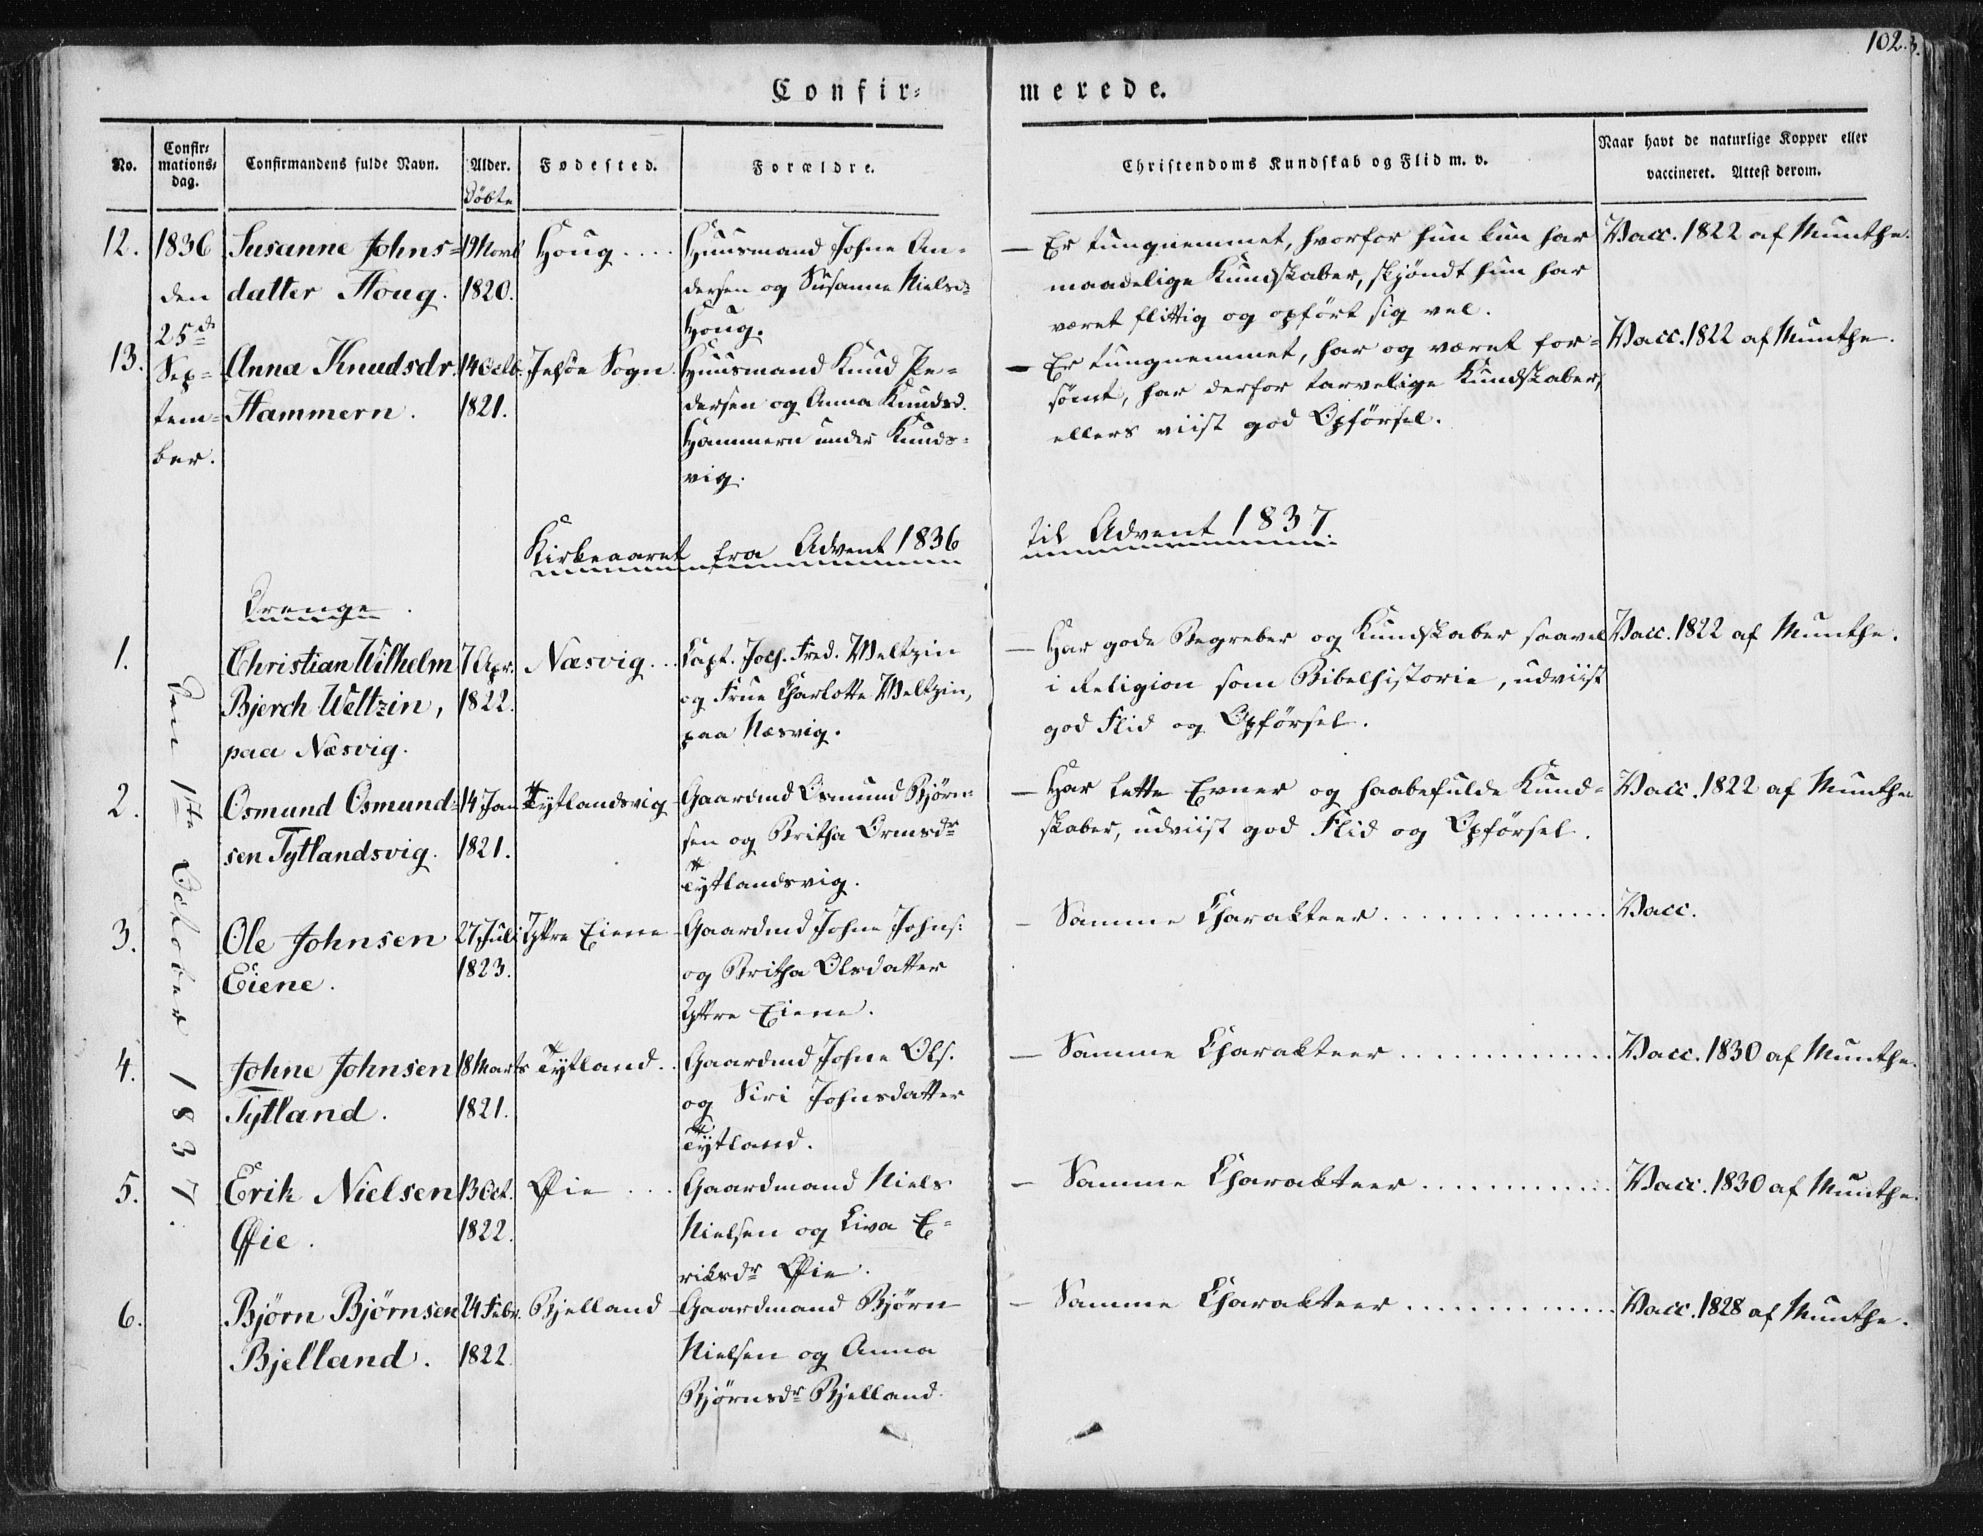 102.
Confir=
merede.
No.
Confir=
mations=
dag.
Confirmandens fulde Navn.
Alder.
Døbte
Fødested.
Forældre.
Christendoms Kundskab og Flid m. v.
Naar havt de naturlige Kopper eller
vaccineret. Attest derom.
12.
1836
den
25de
Sep=
tem=
ber.
Susanne Johns=
datter Houg.
19 Novb
1820.
Houg....
Huusmand Johne An=
dersen og Susanne Nielsd=
Houg.
— Er tungnemmet, hvorfor hun kun har
maadelige Kundskaber, skjøndt hun har
været flittig og opført sig vel.
Vacc. 1822 af Munthe.
13.
Anna Knudsdr.
Hammern.
14 Octb.
1821.
Jelsøe Sogn.
Huusmand Knud Pe=
dersen og Anna Knudsd.
Hammern under Knuds=
vig.
— Er tungnemmet, har og været for=
sømt, har derfor tarvelige Kundskaber,
ellers viist god Opførsel.
Vacc. 1822 af Munthe.
Kirkeaaret fra Advent 1836
til Advent 1837.
Drenge.
Den 1ste October 1837.
1.
Christian Wilhelm
Bjerch Weltzin,
paa Næsvig.
7 Apr.
1822.
Næsvig...
Capt. Joch. Fred. Weltzin
og Frue Charlotte Weltzin,
paa Næsvig.
— Har gode Begreber og Kundskaber saavel
i Religion som Bibelhistorie, udviist
god Flid og Opførsel.
Vacc. 1822 af Munthe.
2.
Osmund Osmund=
sen Tytlandsvig.
14 Jan
1821.
Tytlandsvig
Gaardmd Osmund Bjørn=
sen og Britha Ormsdr
Tytlandsvig.
— Har lette Evner og haabefulde Kund=
skaber, udviist god Flid og Opførsel.
Vacc. 1822 af Munthe
3.
Ole Johnsen
Eiene.
27 Juli
1823.
Yttre Eiene
Gaardmd Johne Johns:
og Britha Olsdatter
Yttre Eiene.
— Samme Charakteer..............
Vacc.
4.
Johne Johnsen
Tytland.
18 Marts
1821.
Tytland..
Gaardmd Johne Ols.
og Siri Johnsdatter
Tytland.
— Samme Charakteer.............
Vacc. 1830 af Munthe.
5.
Erik Nielsen
Øfie.
13 Oct.
1822.
Øfie ...
Gaardmand Niels
Nielsen og Liva E=
riksdr Øfie.
— Samme Charakteer............
Vacc. 1830 af Munthe.
6.
Bjørn Bjørnsen
Bjelland.
24 Febr.
1822
Bjelland
Gaardmand Bjørn
Nielsen og Anna
Bjørnsdr Bjelland.
— Samme Charakteer.............
Vacc. 1828 af Munthe.